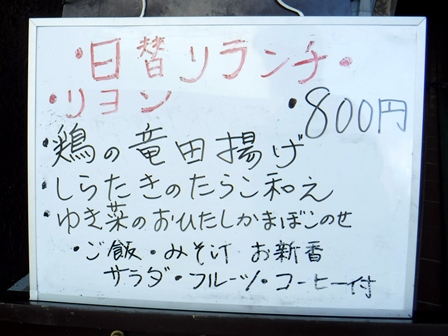 ・日替リランチ・
・リヨン
・800円
・鶏の竜田揚げ
・しらたきのたらこ和え
・ゆき菜のおひたしかまぼこのせ
・ご飯・みそ汁 お新香
サラダ・フルーツ・コーヒー付